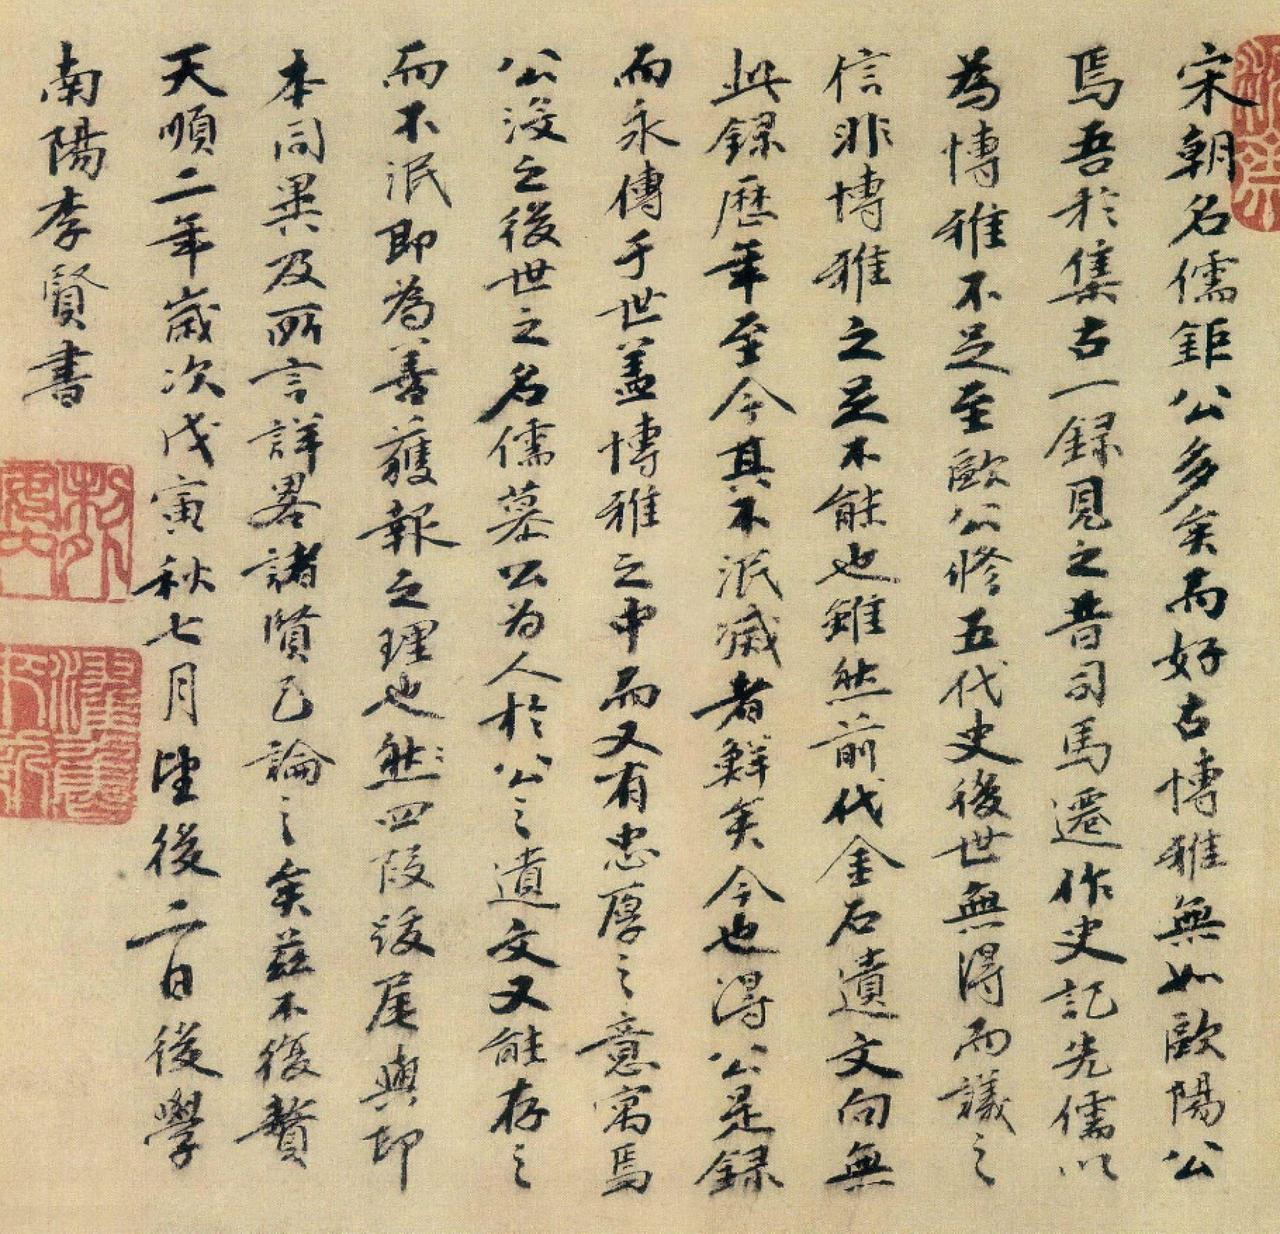 宋朝名儒鉅公多矣而好古博雅無如歐陽公
焉吾於集古一錄見之昔司馬遷作史記先儒以
為博雅不足至歐公修五代史後世無得而議之
信非博雅之足不能也雖然前代金石遺文向無
此錄歷年至今其不泯滅者鮮矣今也得公是録
而永傳于世盖博雅之中而又有忠厚之意寓焉
公沒之後世之名儒慕公为人於公之遺文又能存之
而不泯即為善獲報之理也然四段後尾與印
本同異及所言詳畧諸賢已論之矣茲不復贅
天順二年歲次戊寅秋七月望後二日後學
南陽李賢書